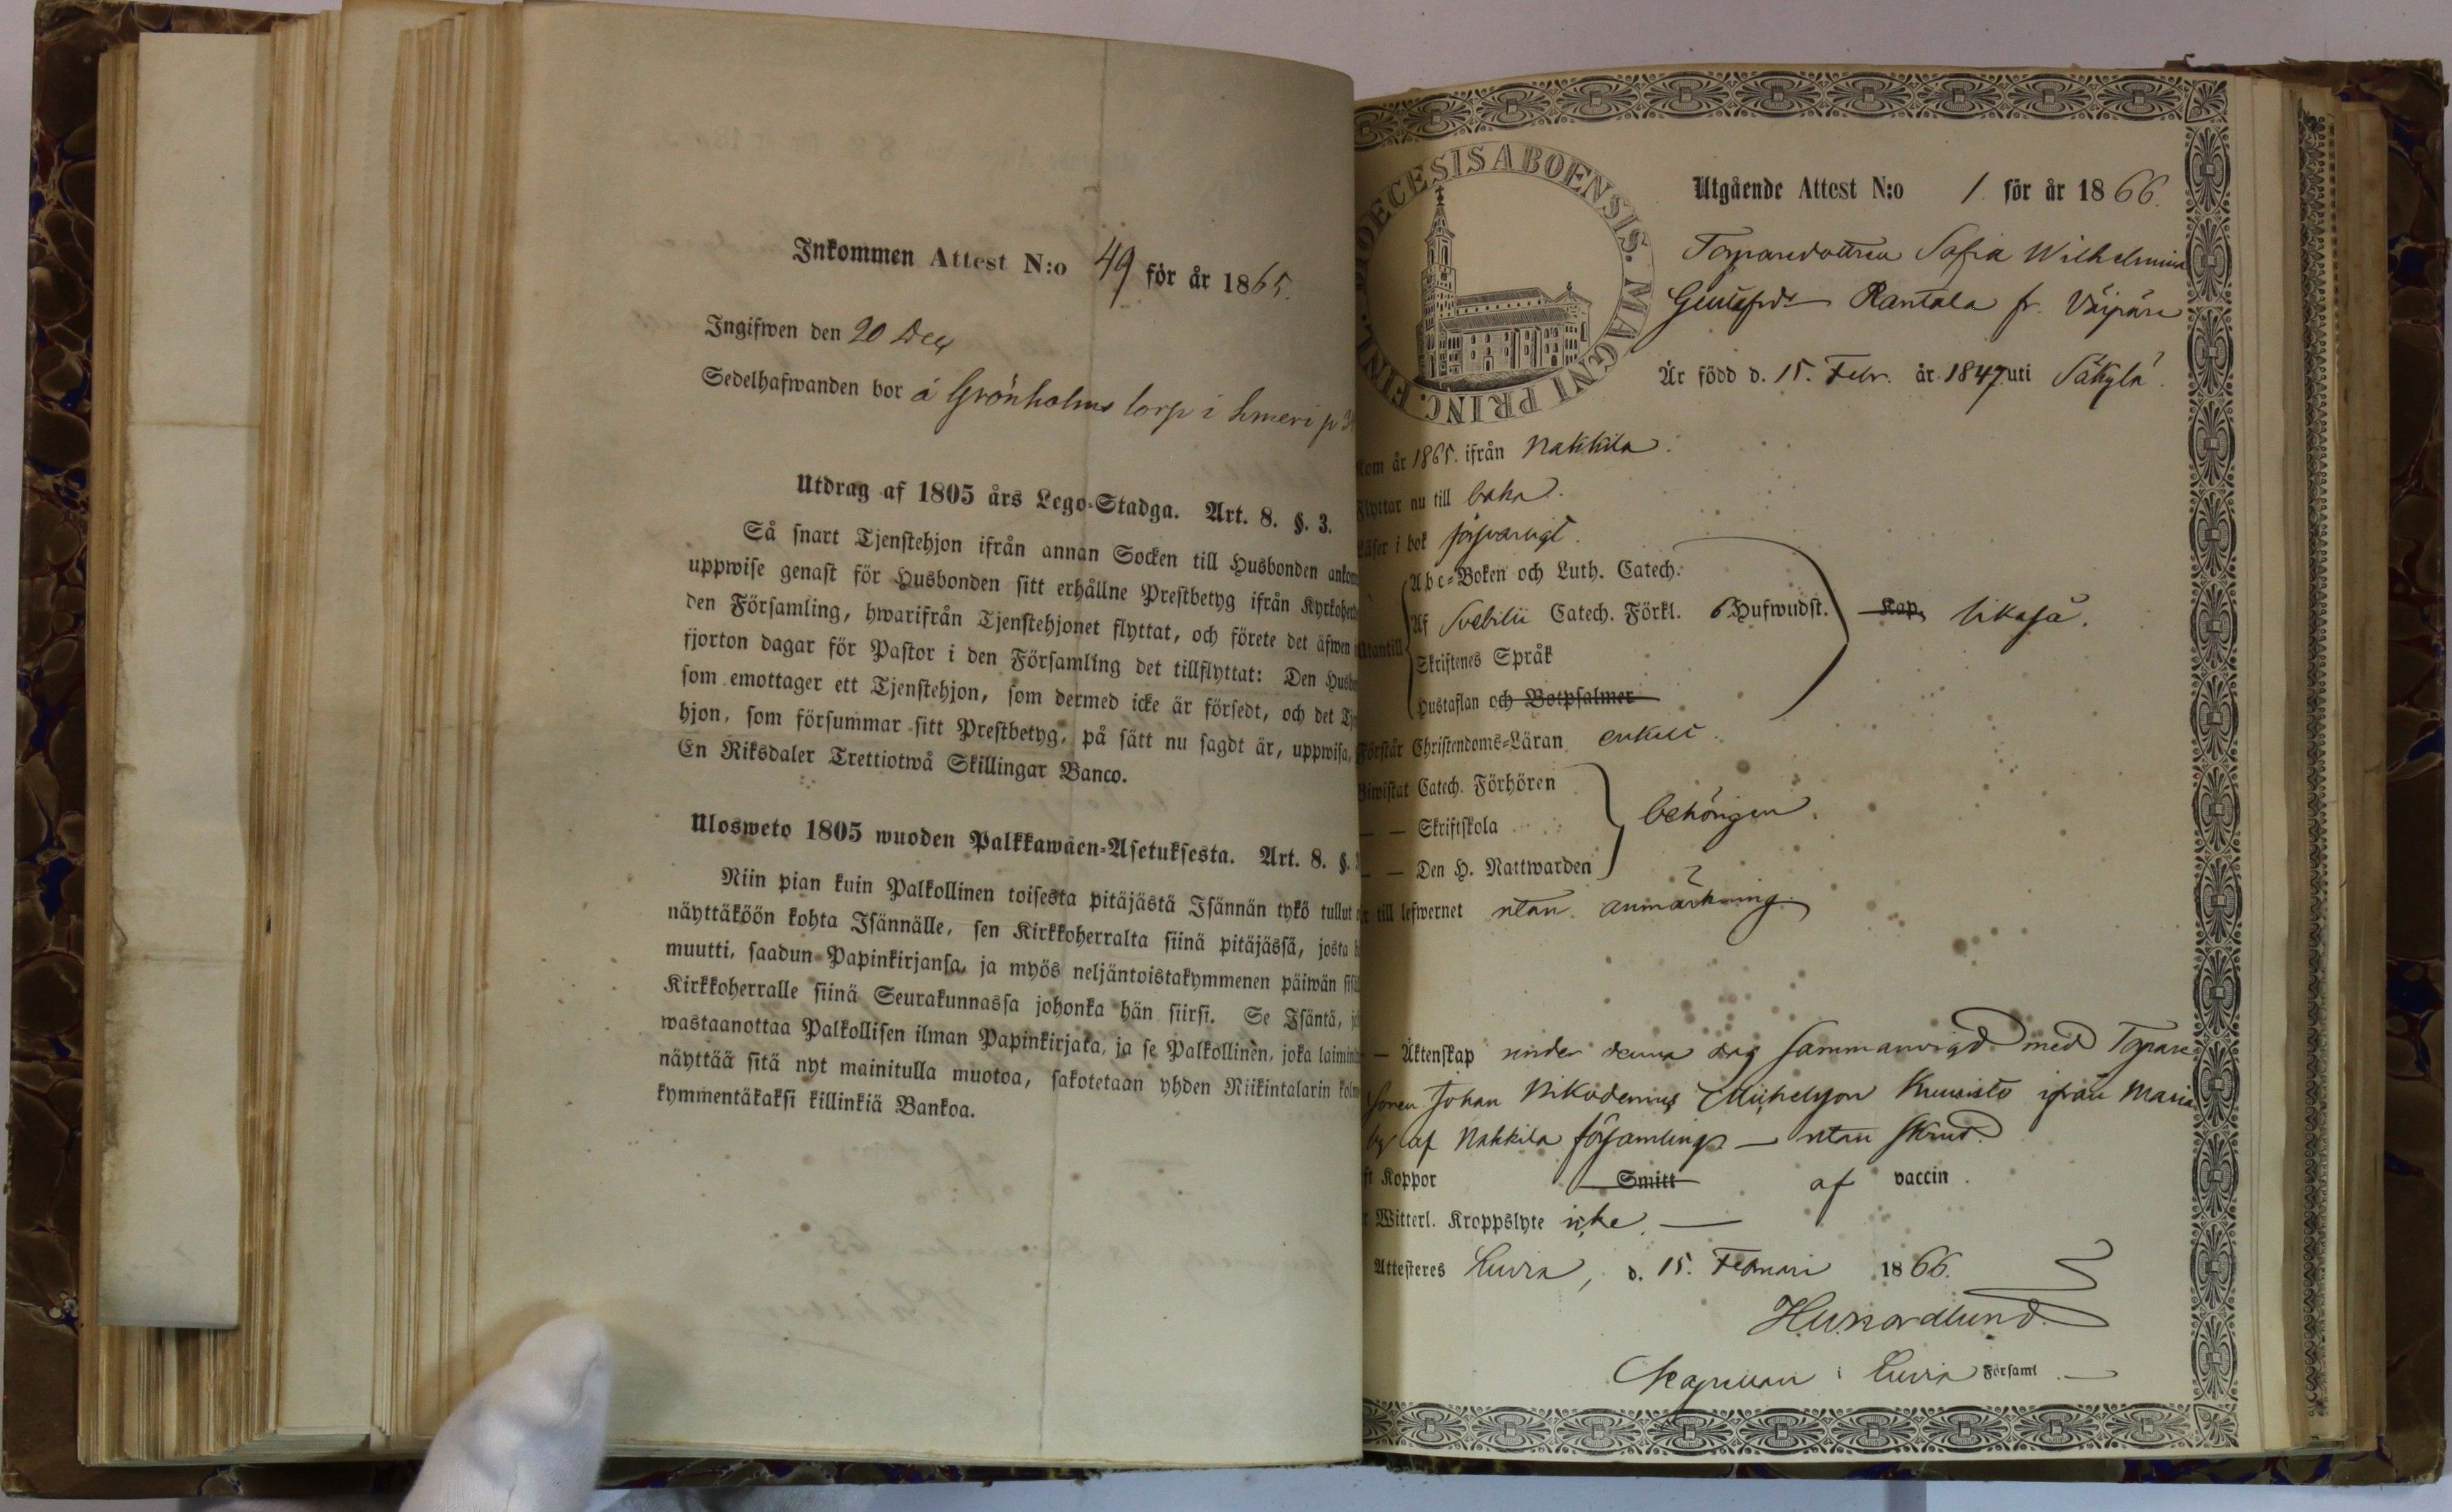 Inkommen Attest N:o 49 för år 1865.
Ingifwen den 20 Dec
Sedelhafwanden bor å Grönholms torp i
Utdrag af 1805 års Lego-Stadga. Art. 8. §. 3.
Så snart Tjenstehjon ifrån annan Socken till Husbonden ankom
uppwise genast för Husbonden sitt erhållne Prestbetyg ifrån Kyrkoherd
den Församling, hwarifrån Tjenstehjonet flyttat, och förete det äfwen
fjorton dagar för Pastor i den Församling det tillflyttat: Den Husbo
som emottager ett Tjenstehjon, som dermed icke är försedt, och det Tje
hjon, som försummar sitt Prestbetyg, på sätt nu sagdt är, uppwisa,
En Riksdaler Trettiotwå Skillingar Banco.
Ulosweto 1805 wuoden Palkkawäen-Asetuksesta. Art. 8. §.
Niin pian kuin Palkollinen toisesta pitäjästä Isännän tykö tullut
näyttäköön kohta Isännälle, sen Kirkkoherralta siinä pitäjässä, josta
muutti, saadun Papinkirjansa, ja myös neljäntoistakymmenen päiwän sisä
Kirkkoherralle siinä Seurakunnassa johonka hän siirsi. Se Isäntä,
wastaanottaa Palkollisen ilman Papinkirjata, ja se Palkollinen, joka laimin
näyttää sitä nyt mainitulla muotoa, sakotetaan yhden Riikintalarin kolm
kymmentäkaksi killinkiä Bankoa.
DIOECESIS ABOENSIS. MAGNI PRINC. FINL.
Utgående Attest N:o 1 för år 1866.
Torparedottren Sofia Wilhelmina
Gustafsdr Rantala fr. Väipäre
Är född d. 15. Febr. år 1847 uti Säkylä.
Kom år 1865. ifrån Nakkila.
Flyttar nu till baka.
Läser i bok försvarligt.
Abc-Boken och Luth. Catech.
Utantill Af Svebilii Catech. Förkl. 6 Hufwudst. Kap. likaså.
Skriftenes Språk
Hustaflan och Botpsalmer
Förstår Christendoms-Läran enkelt.
Biwistat Catech. Förhören
— — Skriftskola behörigen.
— — Den H. Nattwarden
är till lefwernet utan anmärkning.
— Äktenskap under denna dag sammanvigd med Torpare
sonen Johan Nikodemus Michelsson Kuusisto ifrån Maria
by af Nakkila församling — utan skrud.
ft Koppor Smitt af vaccin.
Witterl. Kroppslyte icke. —
Attesteres Luvia, d. 15. Februari 1866.
H.W. Nordlund.
Kapellan i Luvia Församl. —